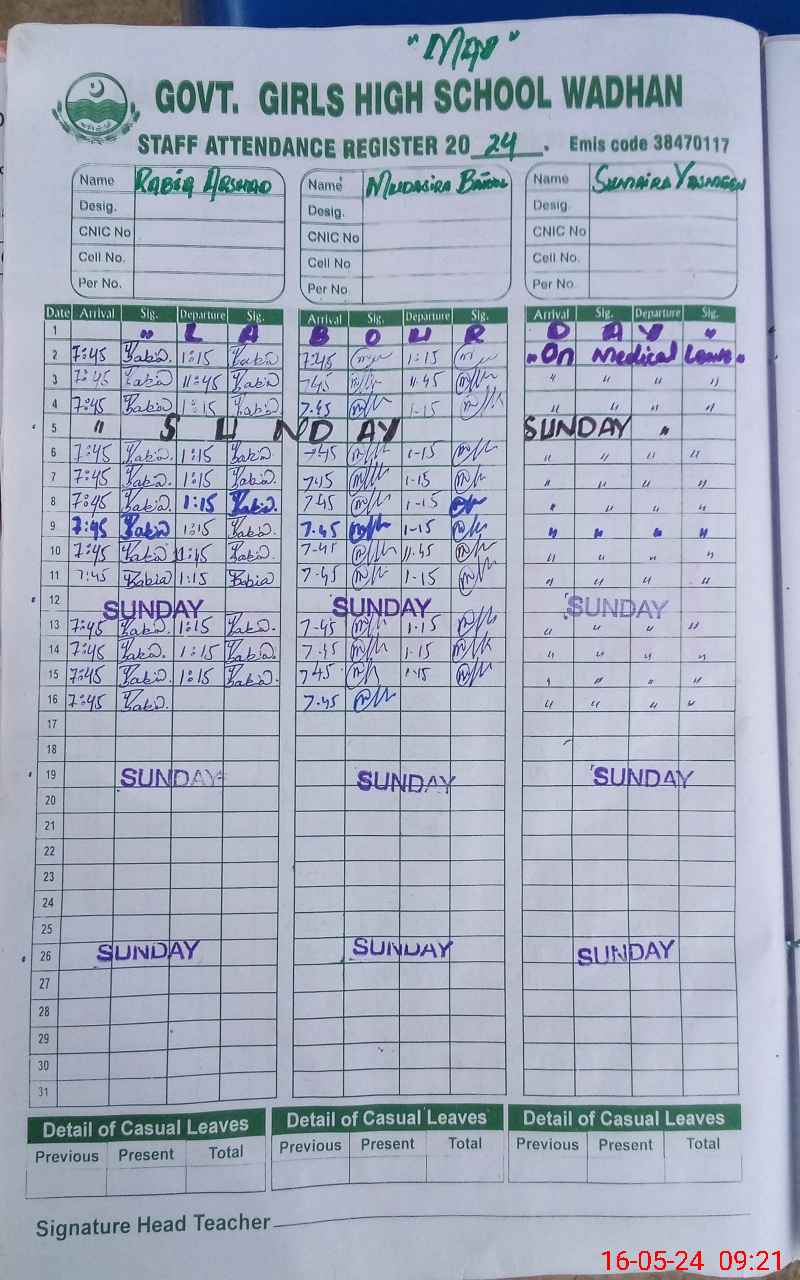 "May"
GOVT. GIRLS HIGH SCHOOL WADHAN
STAFF ATTENDANCE REGISTER 2024. Emis code 38470117
Name Rabia Arshad Name Mudasira Name Sumaira Yasmeen
Desig. Desig. Desig.
CNIC No CNIC No CNIC No
Cell No. Cell No Cell No.
Per No. Per No. Per No.
Date Arrival Sig. Departure Sig. Arrival Sig. Departure Sig. Arrival Sig. Departure Sig.
1 " L A B O U R D A Y "
2 7:45 Rabia. 1:15 Rabia 7:45 1:15 "On Medical Leave"
3 7:45 Rabia 11:45 Rabia 7.45 11.45 " " " "
4 7:45 Rabia 1:15 Rabia 7.45 1-15 " " " "
5 " S U N D A Y SUNDAY "
6 7:45 Rabia. 1:15 Rabia. 7.45 1-15 " " " "
7 7:45 Rabia 1:15 Rabia 1-15 " " " "
8 7:45 Rabia. 1:15 Rabia. 7.45 1-15 " " " "
9 7:45 Rabia 1:15 Rabia. 7.45 1-15 " " " "
10 7:45 Rabia 11:45 Rabia. 7-45 11.45 " " " "
11 7:45 Rabia 1:15 Rabia 7-45 1-15 " " " "
12 SUNDAY SUNDAY SUNDAY
13 7:45 Rabia. 1:15 Rabia. 7-45 1-15 " " " "
14 7:45 Rabia. 1:15 Rabia. 7.45 1-15 " " " "
15 7:45 Rabia. 1:15 Rabia. 7.45 1-15 " " " "
16 7:45 Rabia. 7.45 " " " "
17
18
19 SUNDAY SUNDAY SUNDAY
20
21
22
23
24
25
26 SUNDAY SUNDAY SUNDAY
27
28
29
30
31
Detail of Casual Leaves Detail of Casual Leaves Detail of Casual Leaves
Previous Present Total Previous Present Total Previous Present Total
Signature Head Teacher
16-05-24 09:21